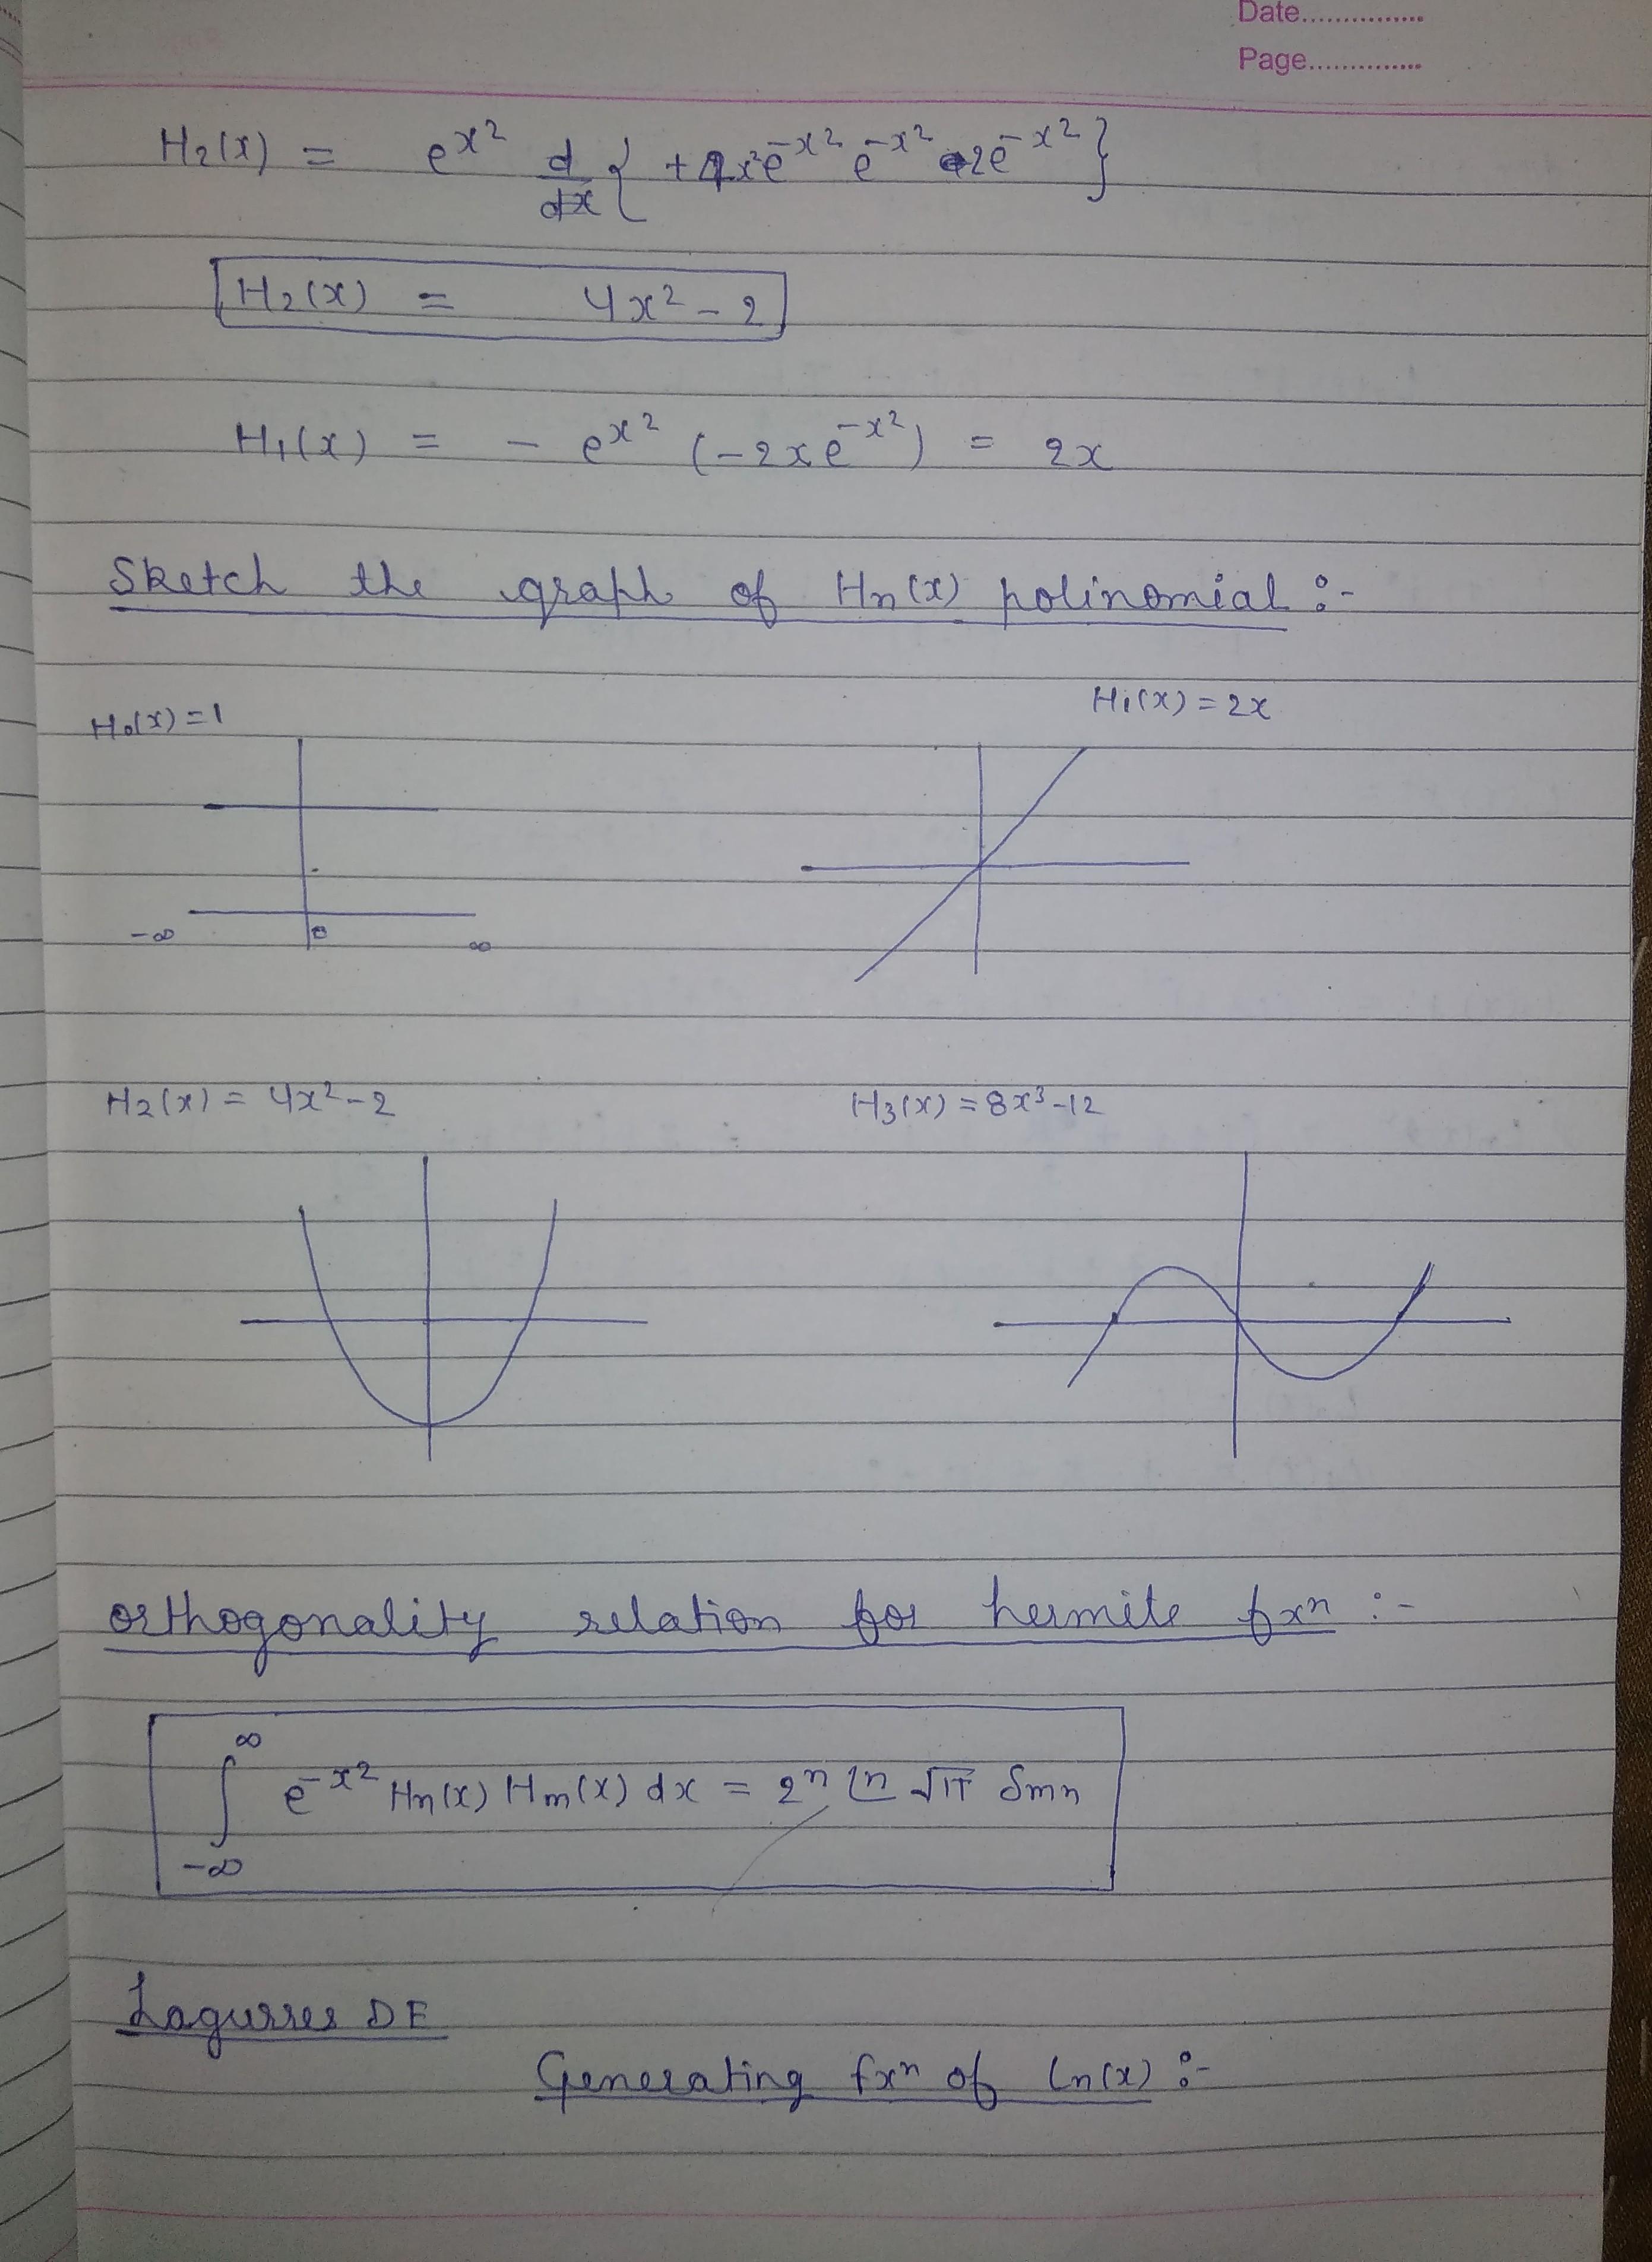 Date...............
Page..............
H₂(x) = e^x² d/dx { + 4x²e^-x² e^-x² 2e^-x² }
H₂(x) = 4x² - 2
H₁(x) = - e^x² (-2xe^-x²) = 2x
Sketch the graph of Hn(x) polinomial :-
H₀(x) = 1
H₁(x) = 2x
-∞ 0 ∞
H₂(x) = 4x² - 2
H₃(x) = 8x³ - 12
orthogonality relation for hermite fxⁿ :-
∫_-∞^∞ e^-x² Hn(x) Hm(x) dx = 2ⁿ ⌊n √π δmn
Lagurres DE
Generating fxⁿ of Ln(x) :-